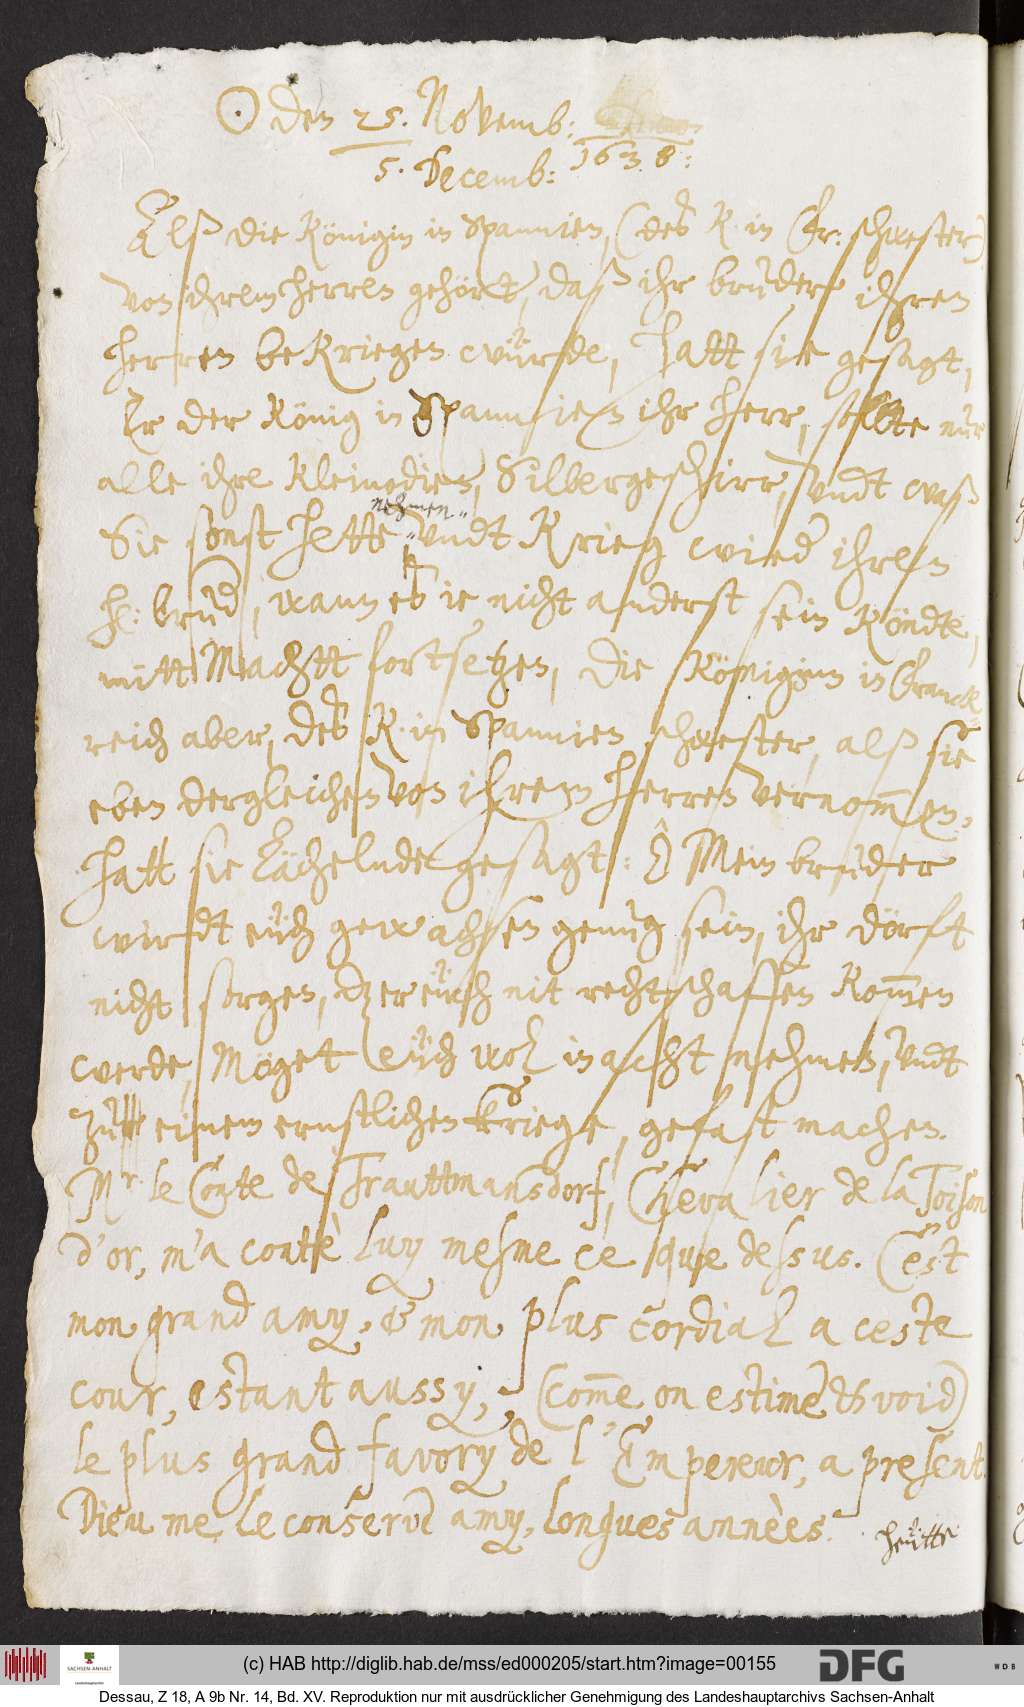 ☉ den 25. Novemb:
5. Decemb: 1638:
Alß die Königin in Spannien, (des K. in Fr: schwester)
von ihrem herren gehört, daß ihr bruder ihren
herren bekriegen würde, hatt sie gesagt,
Er der König in Spannien ihr herr, sollte nur
alle ihre kleinodien, Silbergeschirr, undt waß
nehmen"
Sie sonst hette " undt Krieg wied ihren
h: brud, wann es ie nicht anderst sein köndte,
mitt Machtt fortsetzen, Die Königinn in Franck-
reich aber, des K. in Spannien schwester, alß sie
eben dergleichen von ihrem herren vernom̄en:
hatt sie Lächelnde gesagt: ô Mein bruder
wirdt euch gewachsen genug sein, ihr dörft
nicht sorgen, dz er euch nit rechtschaffen kom̄en
werde, Möget euch wol in acht nehmen, undt
zu einem ernstlichen kriege, gefast machen.
Mr. le Conte de Trauttmansdorf, Chevalier de la Toison
d'or, m'a contè luy mesme ce que dessus. C'est
mon grand amy, & mon plus cordial a ceste
cour, estant aussy, (com̄e on estime & void)
le plus grand favory de l'Empereur, a present.
Dieu me le conserve amy, longues annèes.
heutte
(c) HAB http://diglib.hab.de/mss/ed000205/start.htm?image=00155
SACHSEN-ANHALT
DFG
WDB
Dessau, Z 18, A 9b Nr. 14, Bd. XV. Reproduktion nur mit ausdrücklicher Genehmigung des Landeshauptarchivs Sachsen-Anhalt